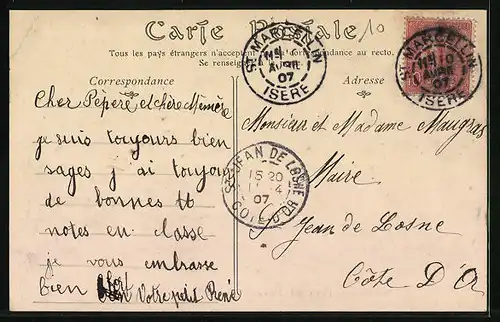 Carte Postale
10
Tous les pays étrangers n'acceptent pas la correspondance au recto.
Se renseigner
Correspondance
Adresse
Cher Pépère et chère Mémère
je suis toujours bien
sages j ai toujou
de bonnes tt
notes en classe
je vous embrasse
bien
Votre petit René
Monsieur et Madame Maugras
Maire
St Jean de Losne
Côte D'Or
ST MARCELLIN
AVRIL
07
ISÈRE
ST MARCELLIN
AVRIL
07
ISÈRE
ST JEAN DE LOSNE
15 20
4
07
COTE D'OR